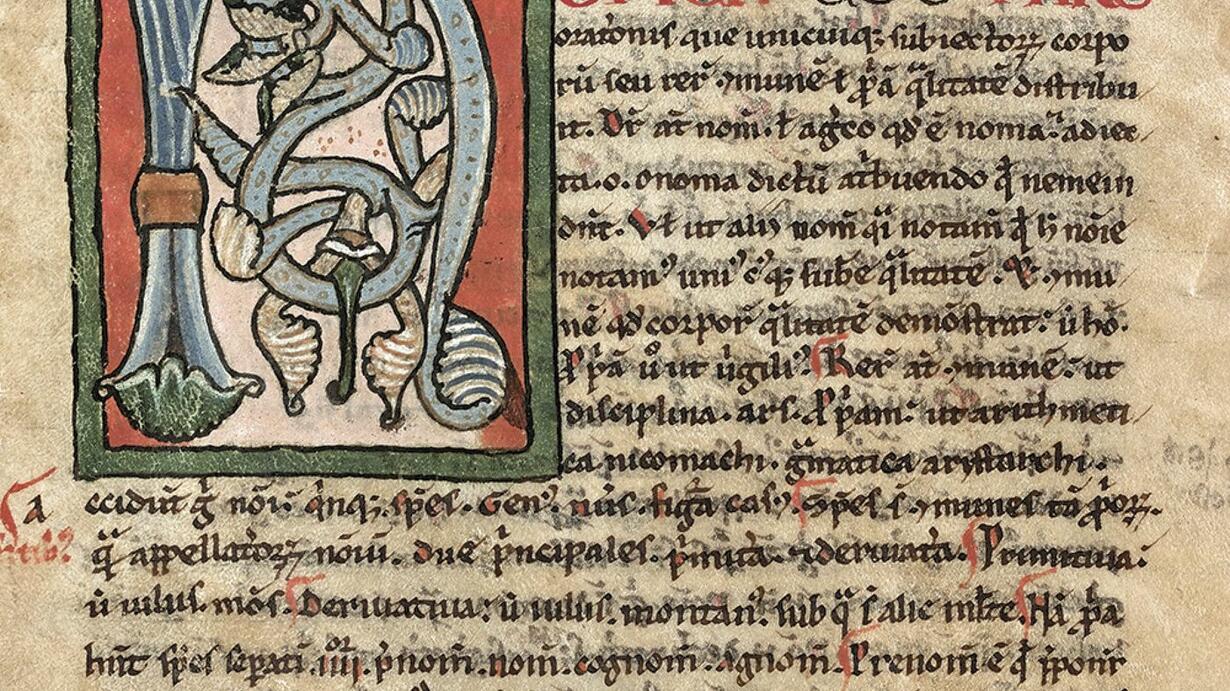 oratonis que unicuiq; subiectoꝝ corpo
rū seu reꝝ ꝯmunē ł ꝓpā q̄litatē distribu
it. Dr̄ aūt nom̄. ł agćo qđ ē noma.
ta. o. onoma dictū atbuendo q̄ nemein
dn̄t. Vł ut alii nom̄ q̄i notam̄ q̄ h noīe
notam᷒ uni᷒ c᷒q; subē q̄litatē. & ꝯmu
nē qđ corpoꝝ q̄litatē demōstrat: ū hō.
ꝓpā ū ut ūgili᷒. Reꝝ aūt ꝯmunē: ut
disciplina. ars. ꝓpam: ut arithmeti
ca nicomachi. g̃matica aristarchi.
a
ccidūt g̊ nōi. q̄nq;. spēs. Gen᷒. nūs. figa cas᷒. Spēs s̄ ꝯmunes tā ꝓpoꝝ.
q̄ appellatoꝝ nōiū. due p̄ncipales. p̄mitā. ⁊ deriuatā. Primitiua:
ū iulus. mōs. Deriuatiua: ū iulius. montan᷒. sub q̄ s̄ alie mlte. Hā ꝓpa
hn̄t spēs sepati. iiii. p̄nom̄. nom̄. cognom̄. agnom̄. Prenom̄ ē q̄ p̄ponit᷒